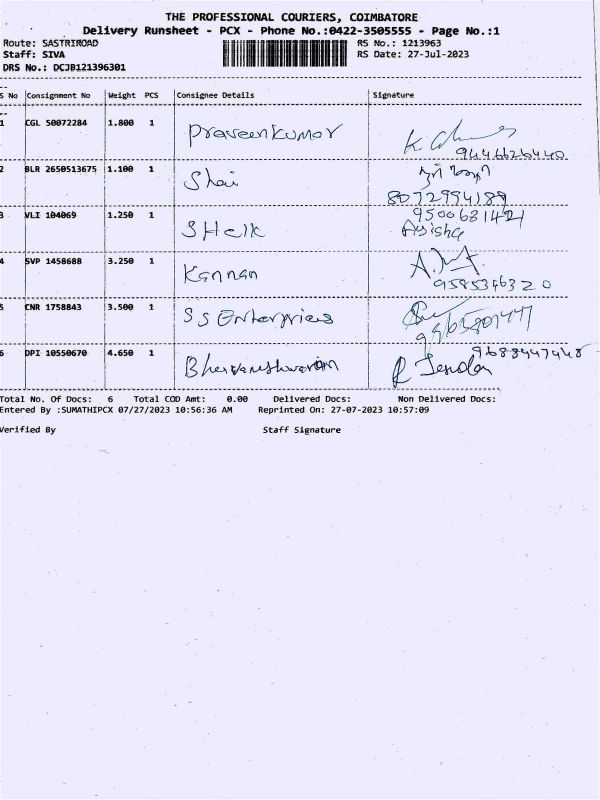 THE PROFESSIONAL COURIERS, COIMBATORE
Delivery Runsheet - PCX - Phone No.:0422-3505555 - Page No.:1
Route: SASTRIROAD RS No.: 1213963
Staff: SIVA RS Date: 27-Jul-2023
DRS No.: DCJB121396301
S No Consignment No Weight PCS Consignee Details Signature
1 CGL 50072284 1.800 1 Praveenkumar
9446626440
2 BLR 2650513675 1.100 1 Shai
8072994189
3 VLI 104069 1.250 1 9500681421
SHaik Ayisha
4 SVP 1458688 3.250 1 Kannan
9585346320
5 CNR 1758843 3.500 1 SS Enterprices
6 DPI 10550670 4.650 1 9688447448
Total No. Of Docs: 6 Total COD Amt: 0.00 Delivered Docs: Non Delivered Docs:
Entered By :SUMATHIPCX 07/27/2023 10:56:36 AM Reprinted On: 27-07-2023 10:57:09
Verified By Staff Signature